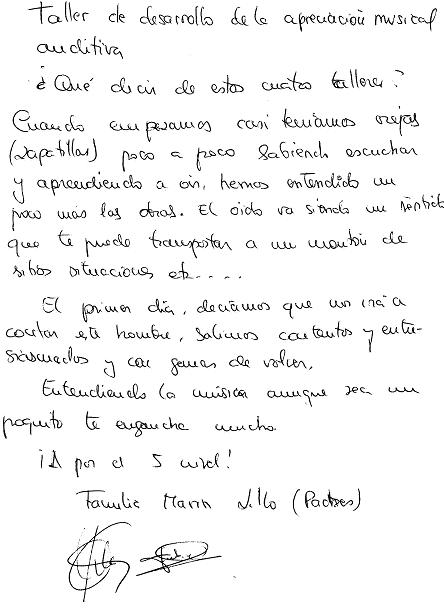 Taller de desarrollo de la apreciación musical
auditiva
¿Qué decir de estos cuatro talleres?
Cuando empezamos casi teníamos orejas
(zapatillas) poco a poco sabiendo escuchar
y aprendiendo a oir, hemos entendido un
poco más las obras. El oido va siendo un sentido
que te puede transportar a un montón de
sitios situaciones etc.....
El primer día, decíamos que nos irá a
contar este hombre, salimos contentos y entu-
siasmados y con ganas de volver.
Entendiendo la música aunque sea un
poquito te engancha mucho.
¡A por el 5 nivel!
Familia Marin (Padres)